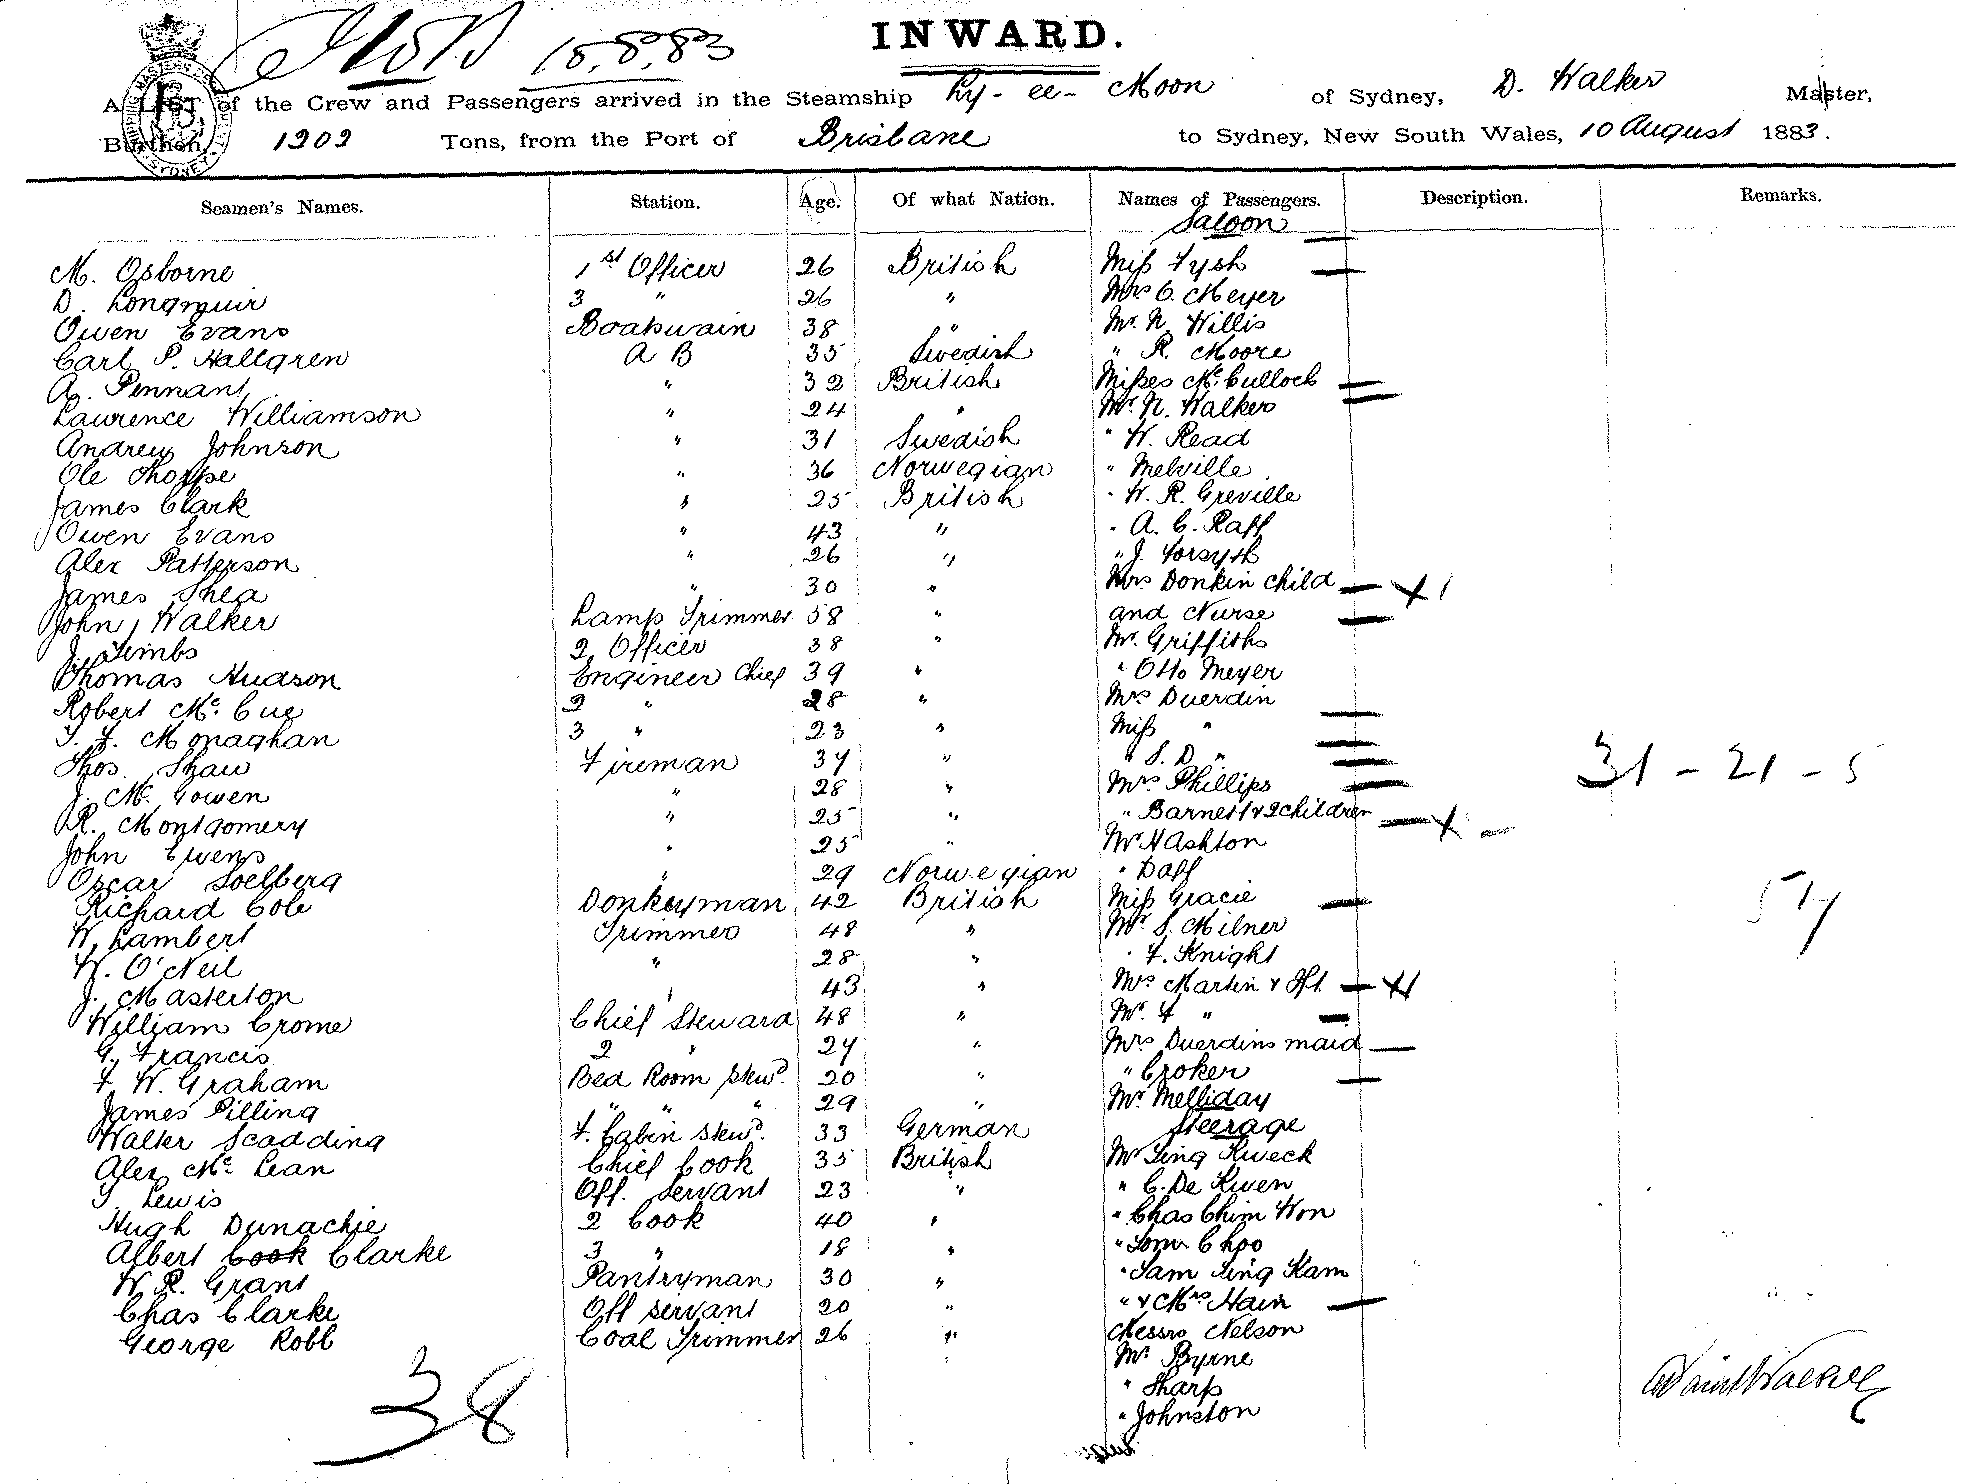 15.8.83
INWARD.
A LIST of the Crew and Passengers arrived in the Steamship Ly-ee-Moon of Sydney, D. Walker Master,
Burthen, 1202 Tons, from the Port of Brisbane to Sydney, New South Wales, 10 August 1883.
Seamen's Names. Station. Age. Of what Nation. Names of Passengers. Description. Remarks.
Saloon
M. Osborne 1st Officer 26 British Miss Fysh
D. Longmuir 3 " 26 " Mrs C. Meyer
Owen Evans Boatswain 38 " Mr. N. Willis
Carl P. Hallgren A B 35 Swedish " R. Moore
A. Pennant " 32 British Misses McCulloch
Lawrence Williamson " 24 " Mr. N. Walker
Andrew Johnson " 31 Swedish " W. Read
Ole Thorpe " 36 Norwegian " Melville
James Clark " 25 British " W. R. Greville
Owen Evans " 43 " " A. C. Raff
Alex Patterson " 26 " " J. Forsyth
James Shea " 30 " Mrs Donkin child
John Walker Lamp Trimmer 58 " and Nurse
J. Timbs 2 Officer 38 " Mr. Griffiths
Thomas Hudson Engineer Chief 39 " " Otto Meyer
Robert McCue 2 " 28 " Mrs Duerdin
T. F. Monaghan 3 " 23 " Miss "
Thos. Shaw Fireman 37 " " S. D. "
J. McGowen " 28 " Mrs Phillips
R. Montgomery " 25 " " Barnett & 2 children
John Ewens " 25 " Mr. H Ashton
Oscar Soelberg " 29 Norwegian " Daff
Richard Cole Donkeyman 42 British Miss Gracie
W. Lambert Trimmer 48 " Mr. S. Milner
W. O'Neil " 28 " " F. Knight
J. Masterton " 43 " Mrs Martin &
William Crome Chief Steward 48 " Mr. F "
G. Francis 2 " 27 " Mrs Duerdins maid
F. W. Graham Bed Room Stewd. 20 " " Croker
James Pilling " " " 29 " Mr. Melliday
Steerage
Walter Scadding F. Cabin Stewd. 33 German Mr Ling Kweck
Alex McLean Chief Cook 35 British " C. De Kwen
T Lewis Off. Servant 23 " " Chas Chim Won
Hugh Dunachie 2 Cook 40 " " Tom Choo
Albert Cook Clarke 3 " 18 " " Sam Sing Kam
W. R. Grant Pantryman 30 " " & Mrs Hain
Chas Clarke Off servant 20 " Messrs Nelson
George Robb Coal Trimmer 26 " Mr. Byrne
" Sharp
" Johnston
31 - 21 - 5
57
38